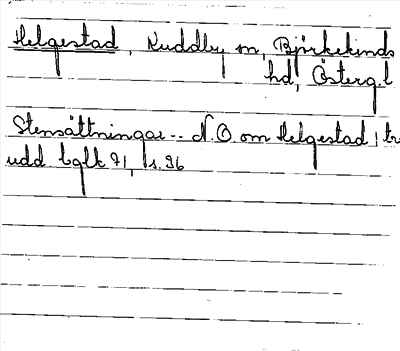 Helgestad, Kuddby sn, Björkekinds
hd, Österg.l
Stensättningar -- N.O. om Helgestad i tr
udd bglk 71, s. 96